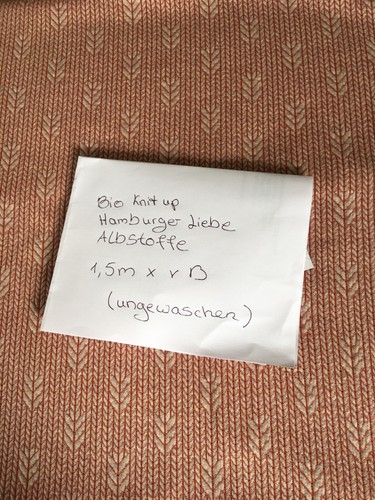 Bio Knit up
Hamburger Liebe
Albstoffe
1,5m x v B
(ungewaschen)